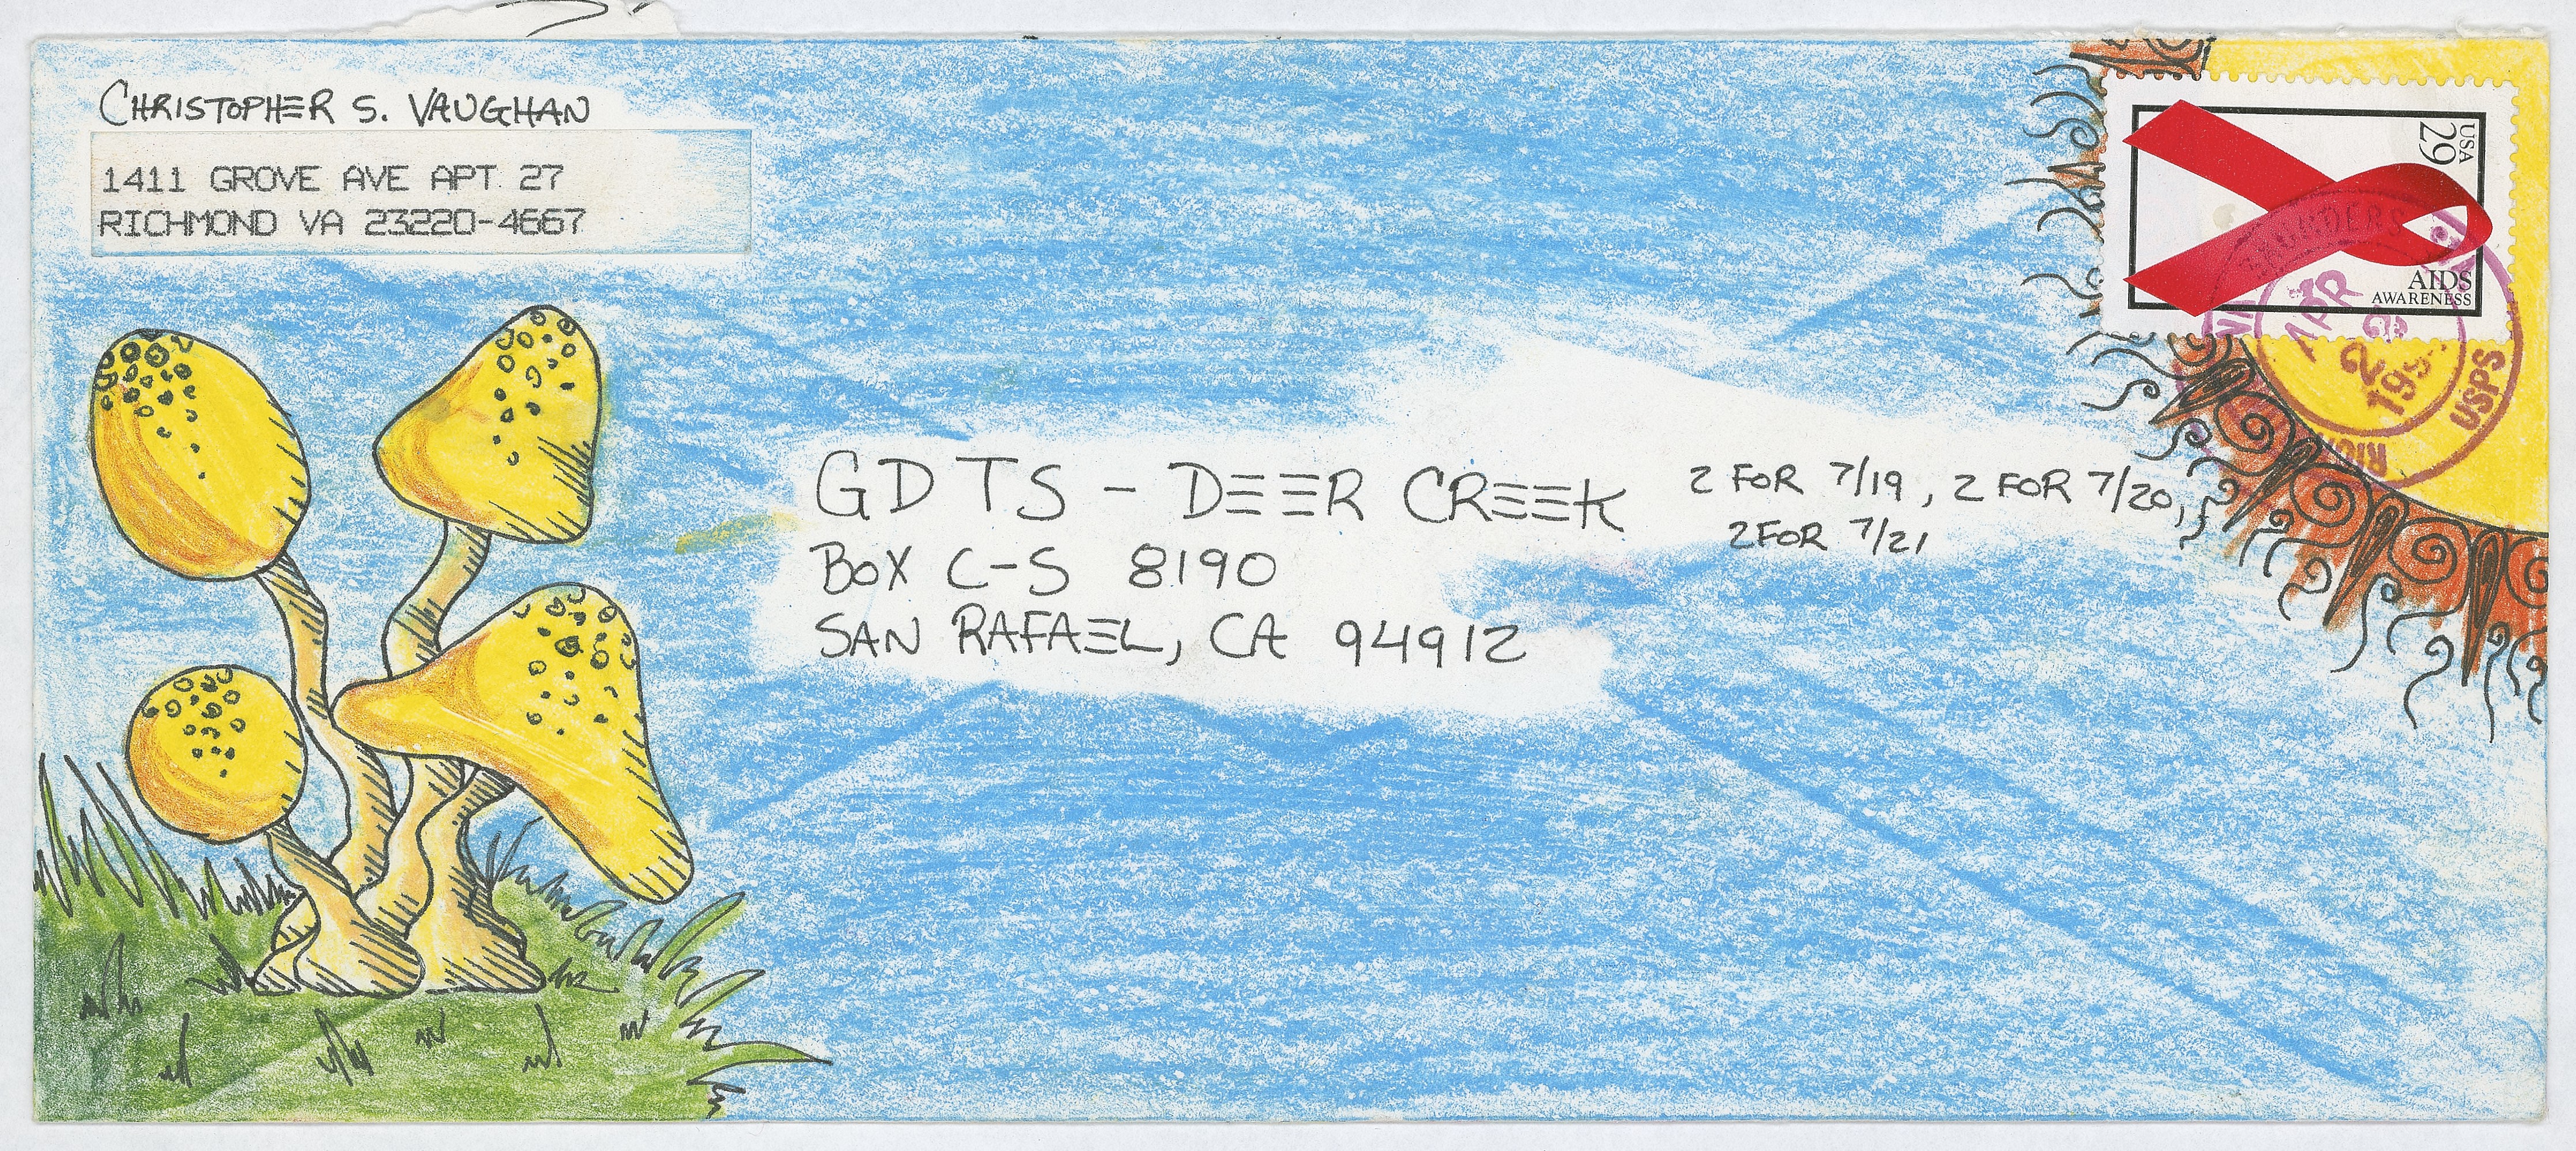 CHRISTOPHER S. VAUGHAN
1411 GROVE AVE APT 27
RICHMOND VA 23220-4667
USA
29
AIDS
AWARENESS
SAUNDERS
APR
USPS
GDTS - DEER CREEK
2 FOR 7/19, 2 FOR 7/20,
2 FOR 7/21
BOX C-S 8190
SAN RAFAEL, CA 94912